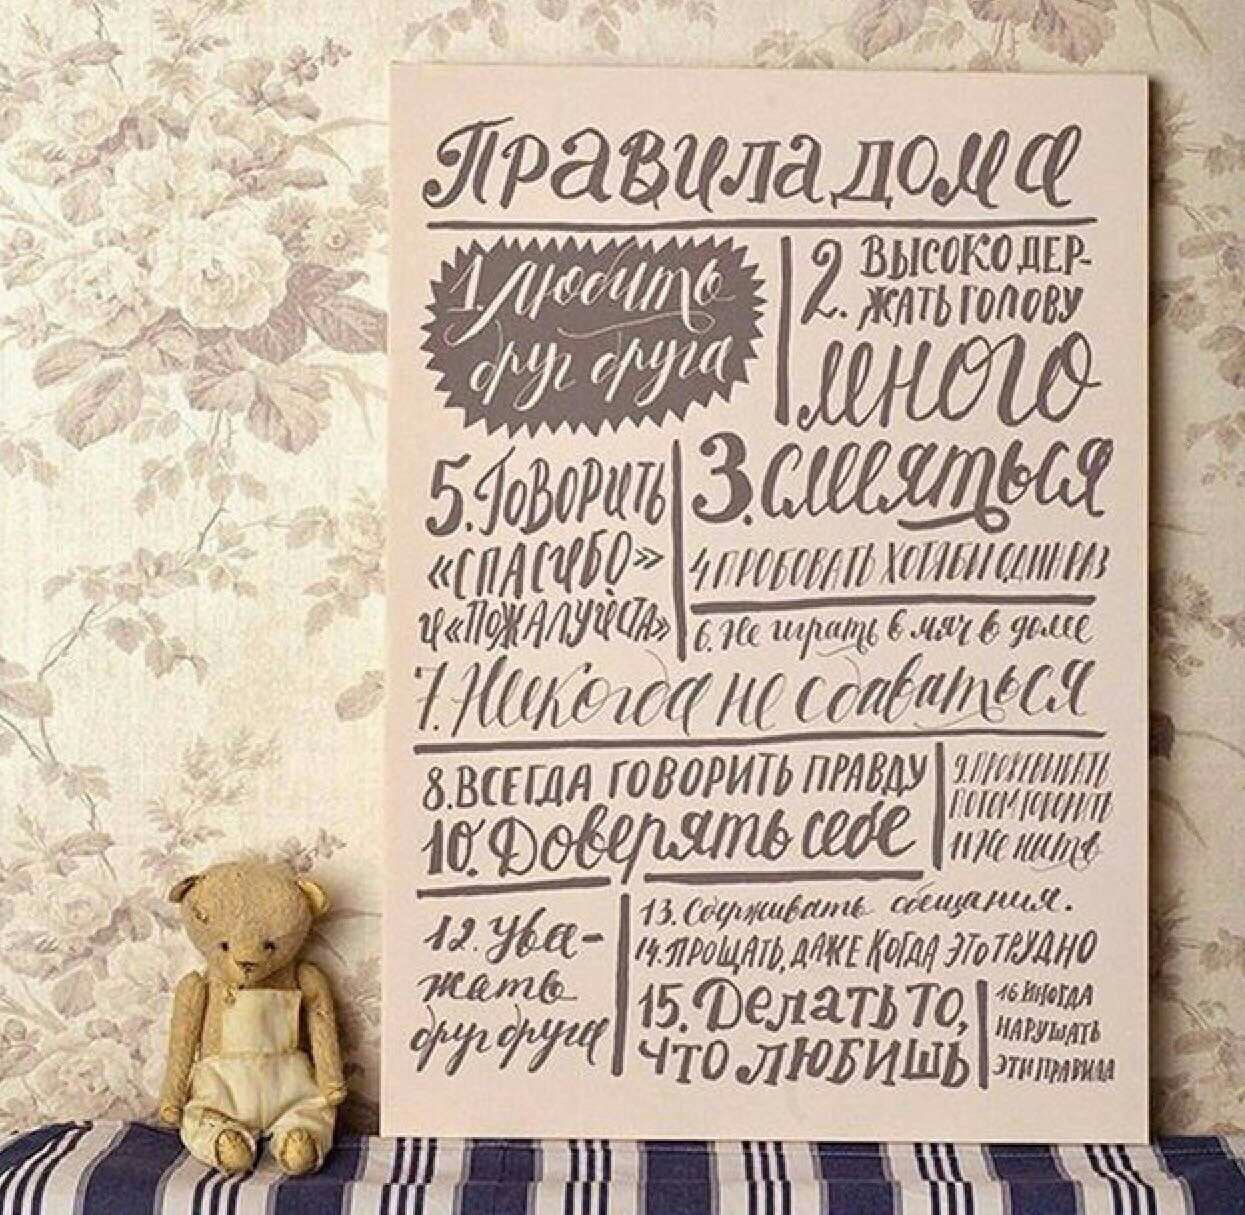 Правила дома
1. Любить
друг друга
2. Высоко дер-
жать голову
много
3. смеяться
4 пробовать хотя бы один раз
5. Говорить
«спасибо»
и «пожалуйста»
6. Не играть в мяч в доме
7. Никогда не сдаваться
8. Всегда говорить правду
9. Прожевывать
потом говорить
10. Доверять себе
11 Не ныть
12. Ува-
жать
друг друга
13. Сдерживать обещания.
14. Прощать, даже когда это трудно
15. Делать то,
что любишь
16 иногда
нарушать
эти правила